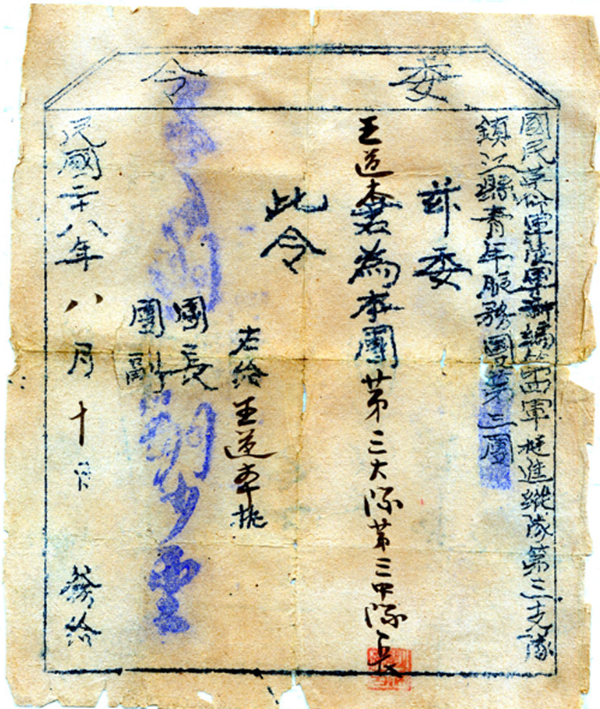 委令
國民革命軍陸軍新編第四軍挺進縱隊第三支隊
鎮江縣青年服務團第三團
茲委
王道本君為本團第三大隊第三中隊長
此令
右給王道本執
團長
團副
民國二十八年八月十日 發給